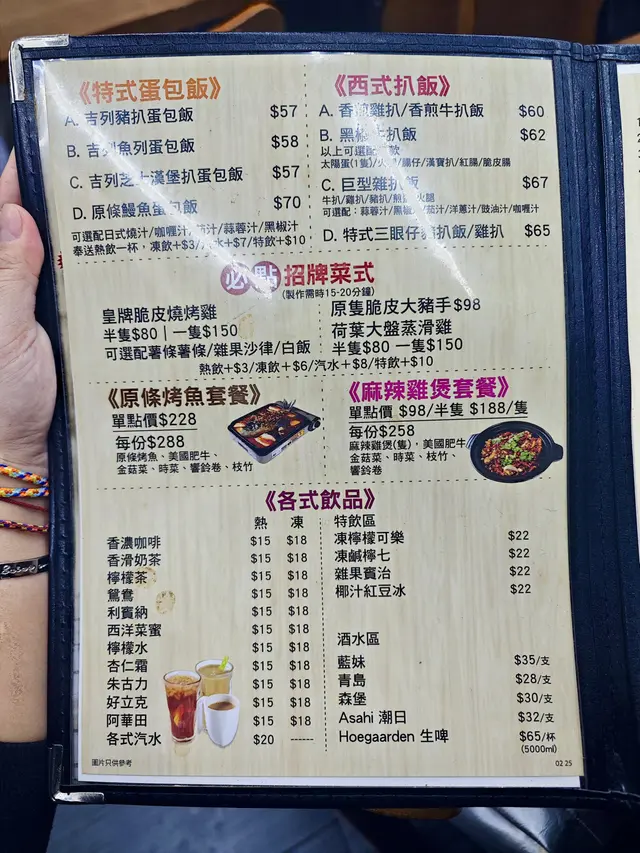 《特式蛋包飯》
A. 吉列豬扒蛋包飯 $57
B. 吉列魚列蛋包飯 $58
C. 吉列芝士漢堡扒蛋包飯 $57
D. 原條鰻魚蛋包飯 $70
可選配日式燒汁/咖喱汁/茄汁/蒜蓉汁/黑椒汁
奉送熱飲一杯,凍飲+$3/汽水+$7/特飲+$10
《西式扒飯》
A. 香煎雞扒/香煎牛扒飯 $60
B. 黑椒牛扒飯 $62
以上可選配
太陽蛋(1隻)/火腿/腸仔/漢寶扒/紅腸/脆皮腸
C. 巨型雜扒飯 $67
牛扒/雞扒/豬扒/煎腸/火腿
可選配:蒜蓉汁/黑椒汁/茄汁/洋蔥汁/豉油汁/咖喱汁
D. 特式三眼仔豬扒飯/雞扒 $65
必點 招牌菜式
(製作需時15-20分鐘)
皇牌脆皮燒烤雞
半隻$80 | 一隻$150
可選配薯條薯條/雜果沙律/白飯
原隻脆皮大豬手$98
荷葉大盤蒸滑雞
半隻$80 一隻$150
熱飲+$3/凍飲+$6/汽水+$8/特飲+$10
《原條烤魚套餐》
單點價$228
每份$288
原條烤魚、美國肥牛、
金菇菜、時菜、響鈴卷、枝竹
《麻辣雞煲套餐》
單點價 $98/半隻 $188/隻
每份$258
麻辣雞煲(隻),美國肥牛
金菇菜、時菜、枝竹、
響鈴卷
《各式飲品》
熱 凍
香濃咖啡 $15 $18
香滑奶茶 $15 $18
檸檬茶 $15 $18
鴛鴦 $15 $18
利賓納 $15 $18
西洋菜蜜 $15 $18
檸檬水 $15 $18
杏仁霜 $15 $18
朱古力 $15 $18
好立克 $15 $18
阿華田 $15 $18
各式汽水 $20 ------
特飲區
凍檸檬可樂 $22
凍鹹檸七 $22
雜果賓治 $22
椰汁紅豆冰 $22
酒水區
藍妹 $35/支
青島 $28/支
森堡 $30/支
Asahi 潮日 $32/支
Hoegaarden 生啤 $65/杯
(5000ml)
圖片只供參考
02 25